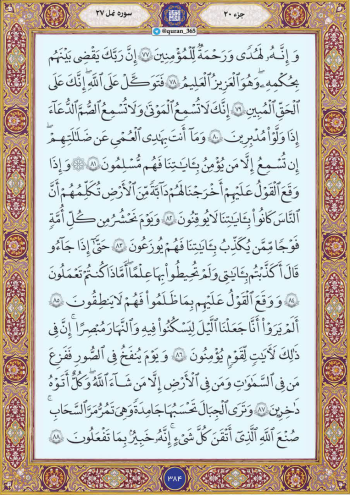 سوره نمل ۲۷
@quran_365
جزء ۲۰
وَإِنَّهُۥ لَهُدٗى وَرَحۡمَةٞ لِّلۡمُؤۡمِنِينَ ۝٧٧ إِنَّ رَبَّكَ يَقۡضِي بَيۡنَهُم
بِحُكۡمِهِۦۚ وَهُوَ ٱلۡعَزِيزُ ٱلۡعَلِيمُ ۝٧٨ فَتَوَكَّلۡ عَلَى ٱللَّهِۖ إِنَّكَ عَلَى
ٱلۡحَقِّ ٱلۡمُبِينِ ۝٧٩ إِنَّكَ لَا تُسۡمِعُ ٱلۡمَوۡتَىٰ وَلَا تُسۡمِعُ ٱلصُّمَّ ٱلدُّعَآءَ
إِذَا وَلَّوۡاْ مُدۡبِرِينَ ۝٨٠ وَمَآ أَنتَ بِهَٰدِي ٱلۡعُمۡيِ عَن ضَلَٰلَتِهِمۡۖ
إِن تُسۡمِعُ إِلَّا مَن يُؤۡمِنُ بِـَٔايَٰتِنَا فَهُم مُّسۡلِمُونَ ۝٨١ ۞ وَإِذَا
وَقَعَ ٱلۡقَوۡلُ عَلَيۡهِمۡ أَخۡرَجۡنَا لَهُمۡ دَآبَّةٗ مِّنَ ٱلۡأَرۡضِ تُكَلِّمُهُمۡ أَنَّ
ٱلنَّاسَ كَانُواْ بِـَٔايَٰتِنَا لَا يُوقِنُونَ ۝٨٢ وَيَوۡمَ نَحۡشُرُ مِن كُلِّ أُمَّةٖ
فَوۡجٗا مِّمَّن يُكَذِّبُ بِـَٔايَٰتِنَا فَهُمۡ يُوزَعُونَ ۝٨٣ حَتَّىٰٓ إِذَا جَآءُو
قَالَ أَكَذَّبۡتُم بِـَٔايَٰتِي وَلَمۡ تُحِيطُواْ بِهَا عِلۡمًا أَمَّاذَا كُنتُمۡ تَعۡمَلُونَ
۝٨٤ وَوَقَعَ ٱلۡقَوۡلُ عَلَيۡهِم بِمَا ظَلَمُواْ فَهُمۡ لَا يَنطِقُونَ ۝٨٥
أَلَمۡ يَرَوۡاْ أَنَّا جَعَلۡنَا ٱلَّيۡلَ لِيَسۡكُنُواْ فِيهِ وَٱلنَّهَارَ مُبۡصِرًاۚ إِنَّ فِي
ذَٰلِكَ لَأٓيَٰتٖ لِّقَوۡمٖ يُؤۡمِنُونَ ۝٨٦ وَيَوۡمَ يُنفَخُ فِي ٱلصُّورِ فَفَزِعَ
مَن فِي ٱلسَّمَٰوَٰتِ وَمَن فِي ٱلۡأَرۡضِ إِلَّا مَن شَآءَ ٱللَّهُۚ وَكُلٌّ أَتَوۡهُ
دَٰخِرِينَ ۝٨٧ وَتَرَى ٱلۡجِبَالَ تَحۡسَبُهَا جَامِدَةٗ وَهِيَ تَمُرُّ مَرَّ ٱلسَّحَابِۚ
صُنۡعَ ٱللَّهِ ٱلَّذِيٓ أَتۡقَنَ كُلَّ شَيۡءٍۚ إِنَّهُۥ خَبِيرُۢ بِمَا تَفۡعَلُونَ ۝٨٨
۳۸۴